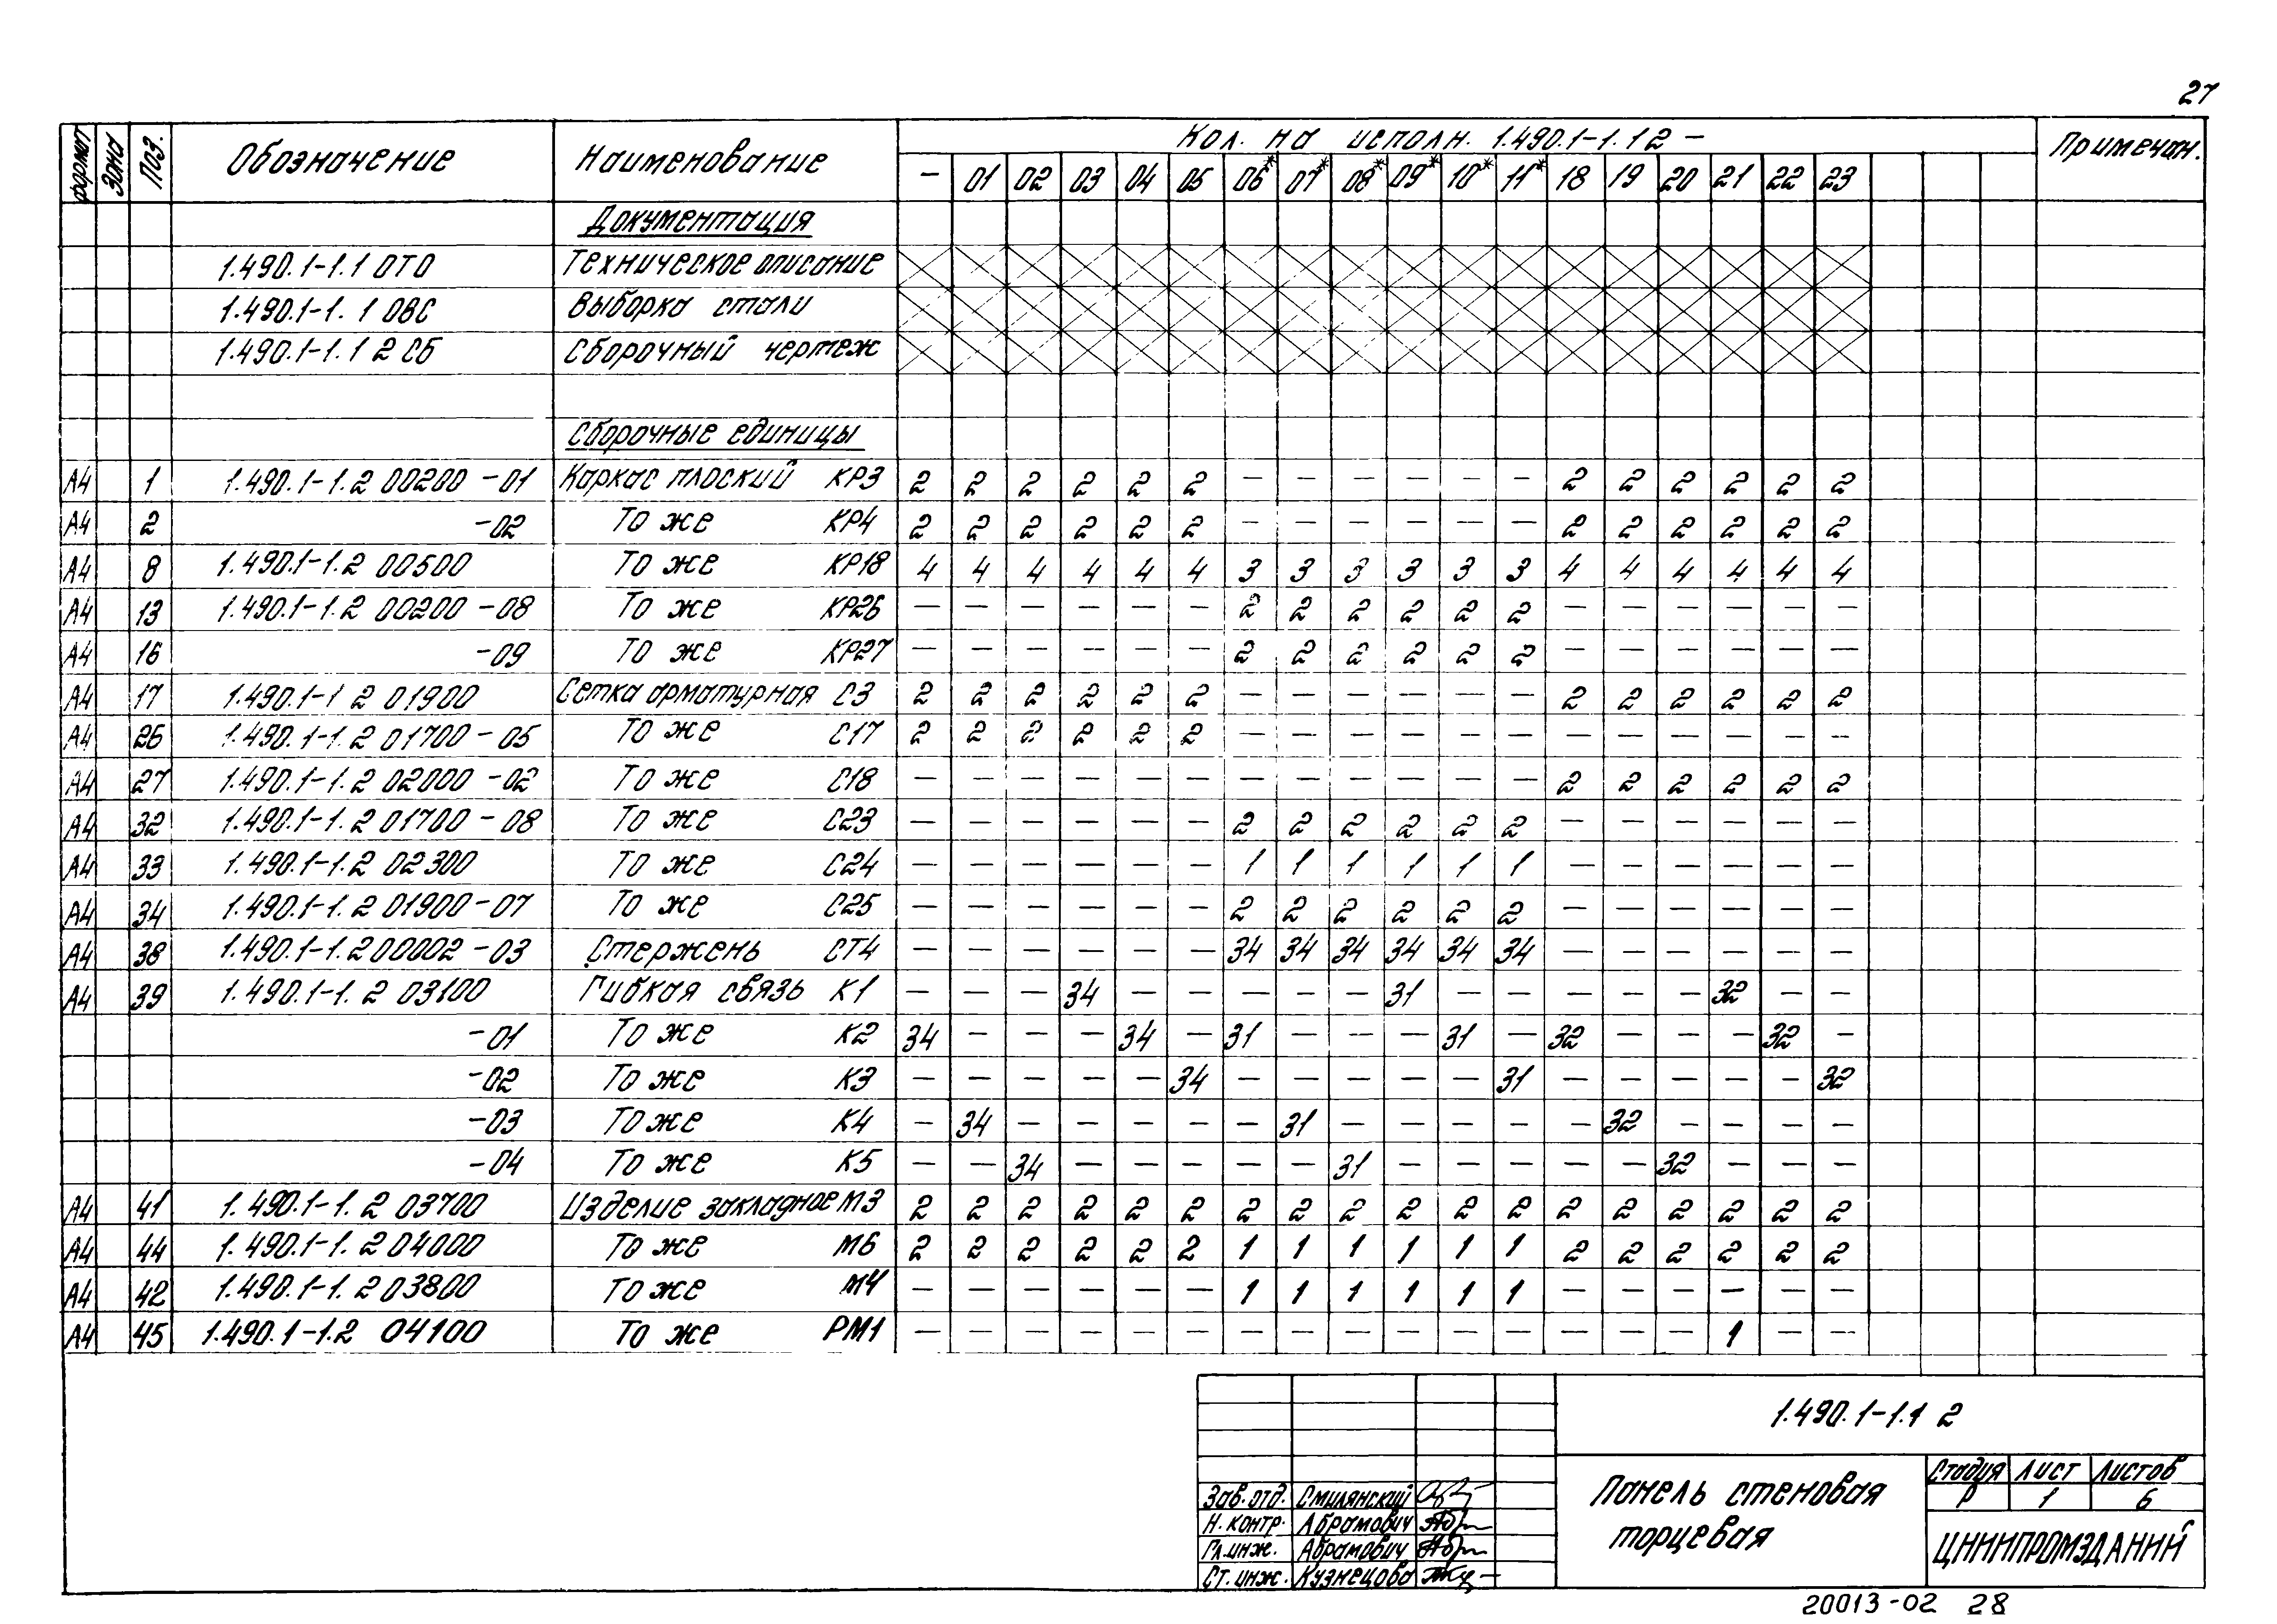 27
формат Зона Поз. Обозначение Наименование Кол. на исполн. 1.490.1-1.1 2 - Примечан.
- 01 02 03 04 05 06* 07* 08* 09* 10* 11* 18 19 20 21 22 23
Документация
1.490.1-1.1 0ТО Техническое описание
1.490.1-1.1 0ВС Выборка стали
1.490.1-1.1 2 СБ Сборочный чертеж
Сборочные единицы
А4 1 1.490.1-1.2 00200 -01 Каркас плоский КР3 2 2 2 2 2 2 - - - - - - 2 2 2 2 2 2
А4 2 -02 То же КР4 2 2 2 2 2 2 - - - - - - 2 2 2 2 2 2
А4 8 1.490.1-1.2 00500 То же КР18 4 4 4 4 4 4 3 3 3 3 3 3 4 4 4 4 4 4
А4 13 1.490.1-1.2 00200 -08 То же КР26 - - - - - - 2 2 2 2 2 2 - - - - - -
А4 16 -09 То же КР27 - - - - - - 2 2 2 2 2 2 - - - - - -
А4 17 1.490.1-1 2 01900 Сетка арматурная С3 2 2 2 2 2 2 - - - - - - 2 2 2 2 2 2
А4 26 1.490.1-1.2 01700 - 05 То же С17 2 2 2 2 2 2 - - - - - - - - - - - -
А4 27 1.490.1-1.2 02000 -02 То же С18 - - - - - - - - - - - - 2 2 2 2 2 2
А4 32 1.490.1-1.2 01700 - 08 То же С23 - - - - - - 2 2 2 2 2 2 - - - - - -
А4 33 1.490.1-1.2 02300 То же С24 - - - - - - 1 1 1 1 1 1 - - - - - -
А4 34 1.490.1-1.2 01900-07 То же С25 - - - - - - 2 2 2 2 2 2 - - - - - -
А4 38 1.490.1-1.2 00002 -03 Стержень СТ4 - - - - - - 34 34 34 34 34 34 - - - - - -
А4 39 1.490.1-1.2 03100 Гибкая связь К1 - - - 34 - - - - - 31 - - - - - 32 - -
-01 То же К2 34 - - - 34 - 31 - - - 31 - 32 - - - 32 -
-02 То же К3 - - - - - 34 - - - - - 31 - - - - - 32
-03 То же К4 - 34 - - - - - 31 - - - - - 32 - - - -
-04 То же К5 - - 34 - - - - - 31 - - - - - 32 - - -
А4 41 1.490.1-1.2 03700 Изделие закладное М3 2 2 2 2 2 2 2 2 2 2 2 2 2 2 2 2 2 2
А4 44 1.490.1-1.2 04000 То же М6 2 2 2 2 2 2 1 1 1 1 1 1 2 2 2 2 2 2
А4 42 1.490.1-1.2 03800 То же М4 - - - - - - 1 1 1 1 1 1 - - - - - -
А4 45 1.490.1-1.2 04100 То же РМ1 - - - - - - - - - - - - - - - 1 - -
1.490.1-1.1 2
Зав.отд. Смилянский
Н.контр. Абрамович
Гл.инж. Абрамович
Ст.инж. Кузнецова
Панель стеновая
торцевая
Стадия Лист Листов
Р 1 6
ЦНИИПРОМЗДАНИЙ
20013-02 28